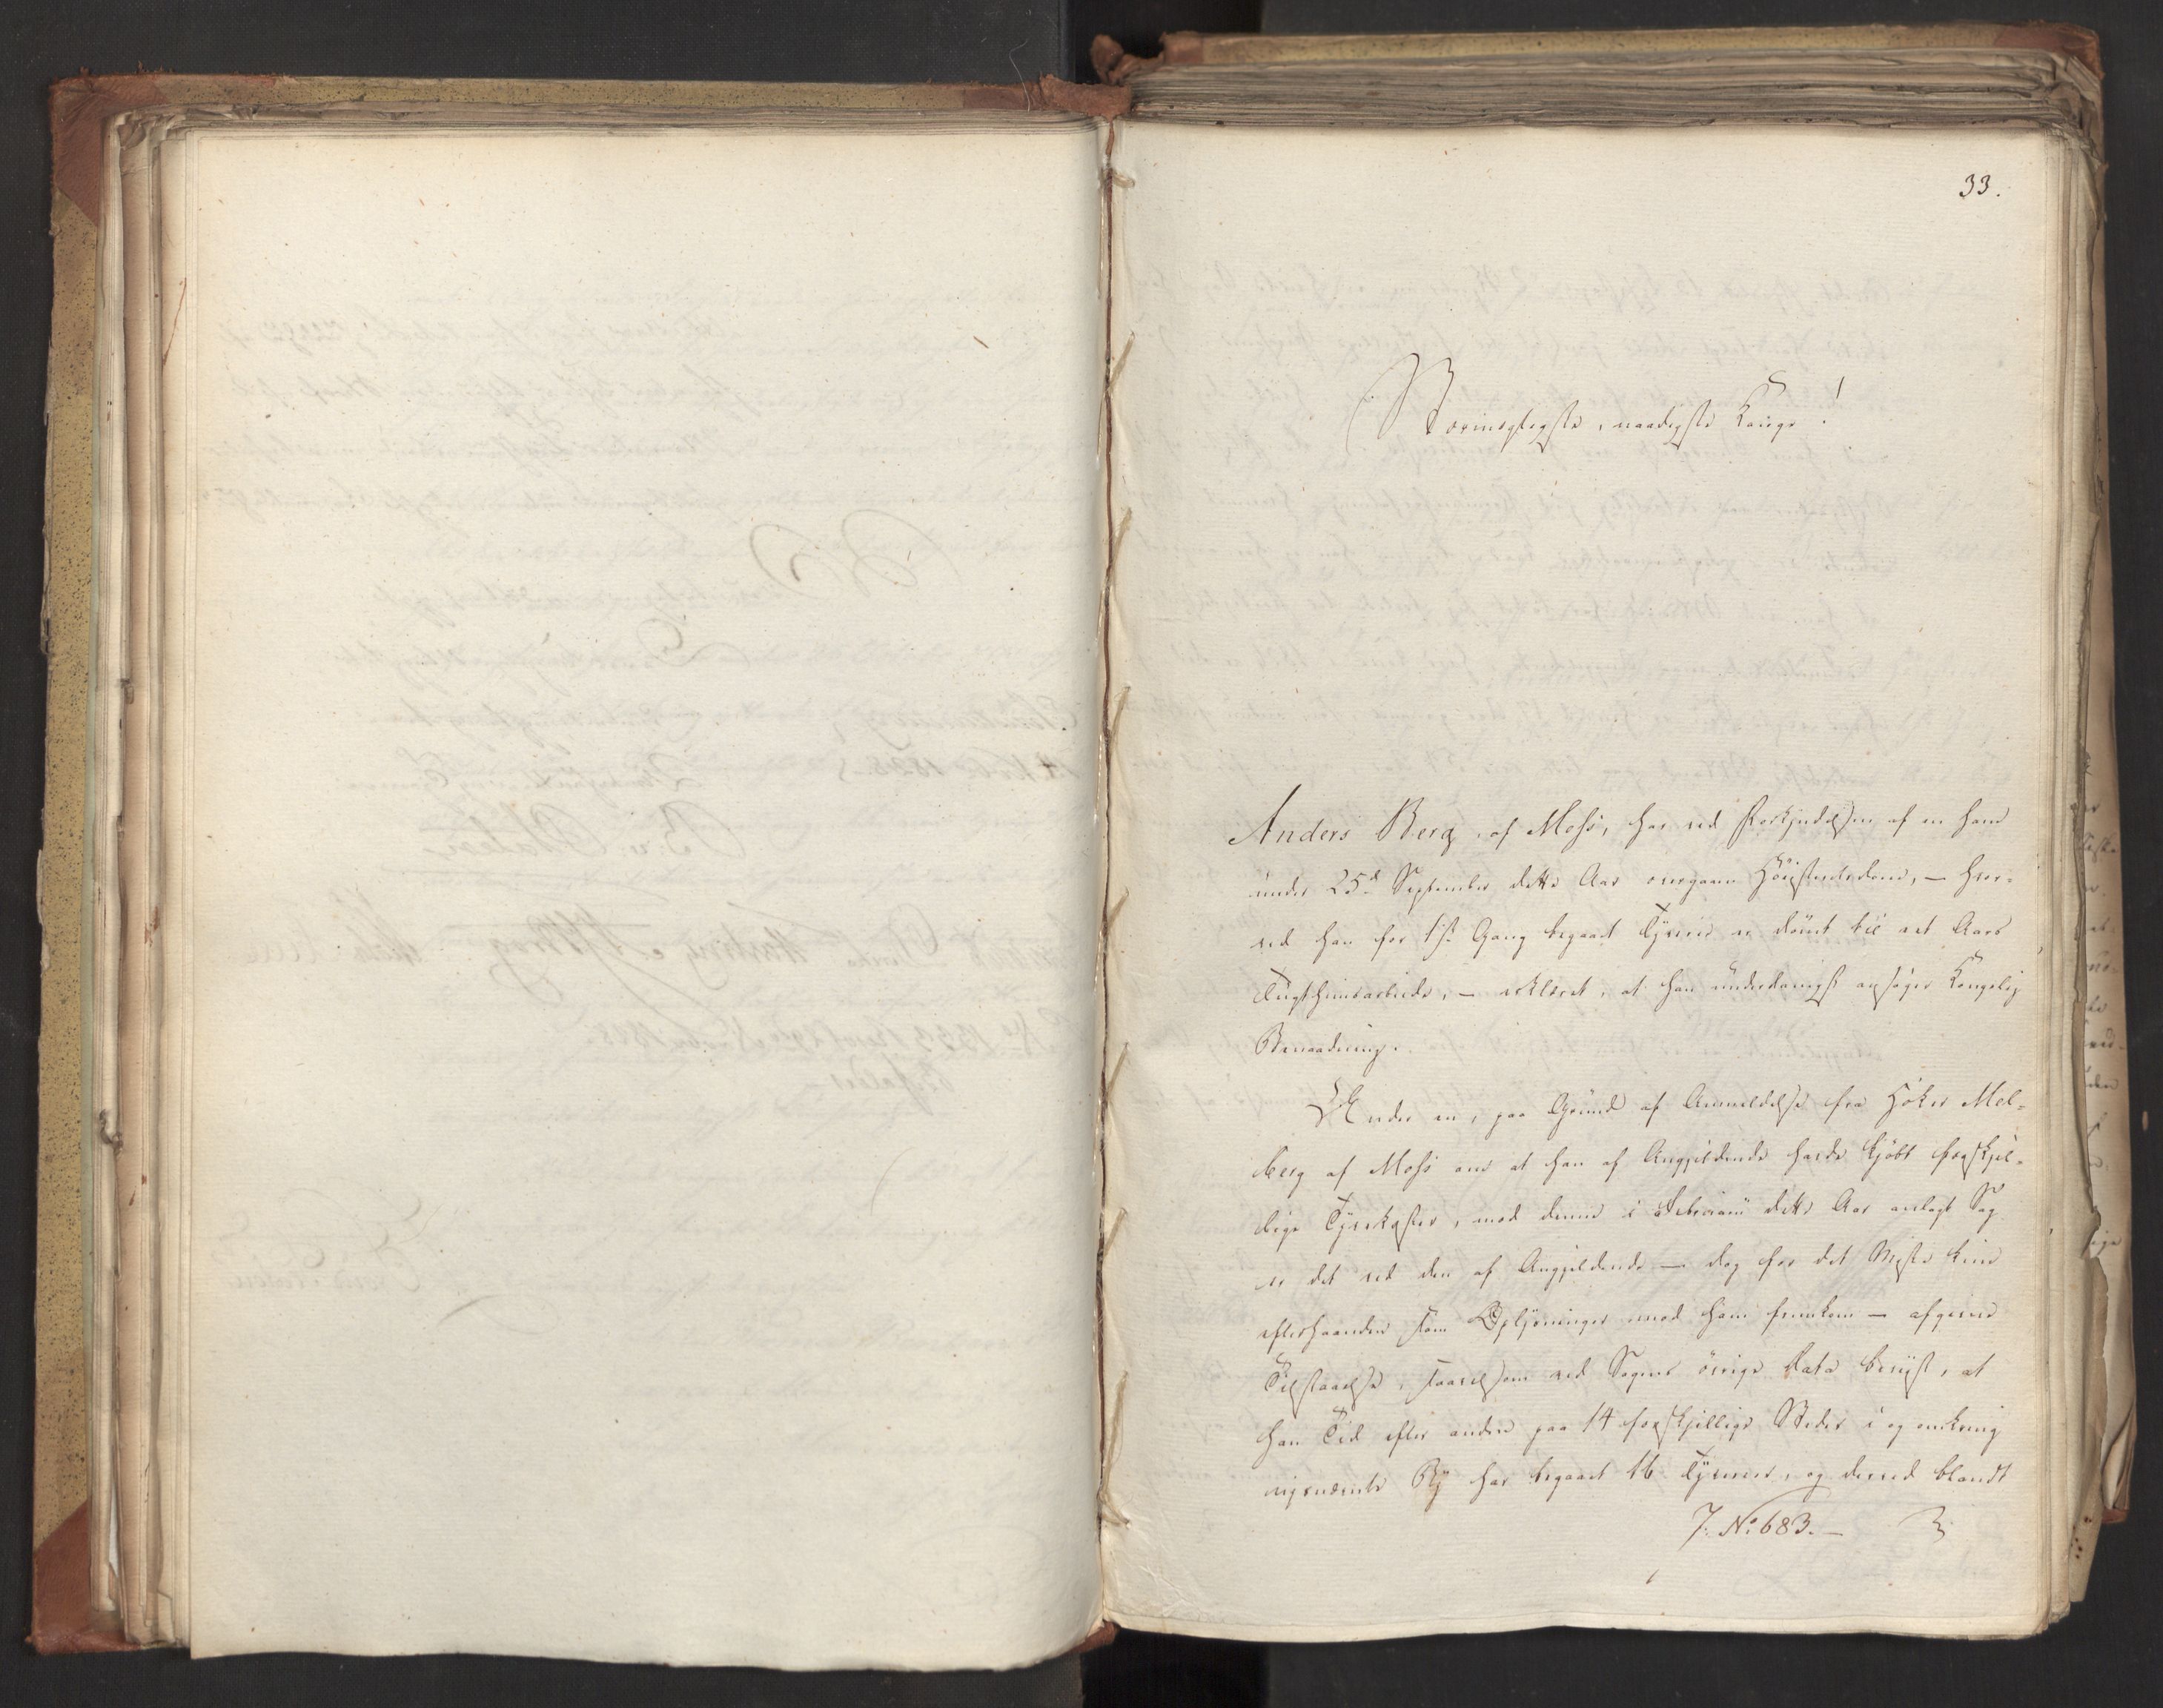 33.
Stormægtigste, naadigste Konge!
Anders Berg, af Moss, har ved Forkyndelsen af en ham
under 25de September dette Aar overgaaen Höiesteretsdom, – hvor-
ved han for 1ste Gang begaaet Tyverie er dömt til et Aars
Tugthuusarbeide, – erklæret, at han underdanigst ansöger Kongelig
Benaadning.
Under en, paa Grund af Anmeldelse fra Höker Mel-
berg af Moss om at han af Angjeldende havde kjöbt forskjel-
lige Tyvekoster, mod denne i Februarii dette Aar anlagt Sag
er det ved den af Angjeldende – dog for det Meste kun
efterhaanden som Oplysninger mod ham fremkom – afgivne
Tilstaaelse, saavelsom ved Sagens övrige Data beviist, at
han Tid efter anden paa 14 forskjellige Steder i og omkring
nysnævnte By har begaaet 16 Tyverier, og derved blandt
J. No 683. –